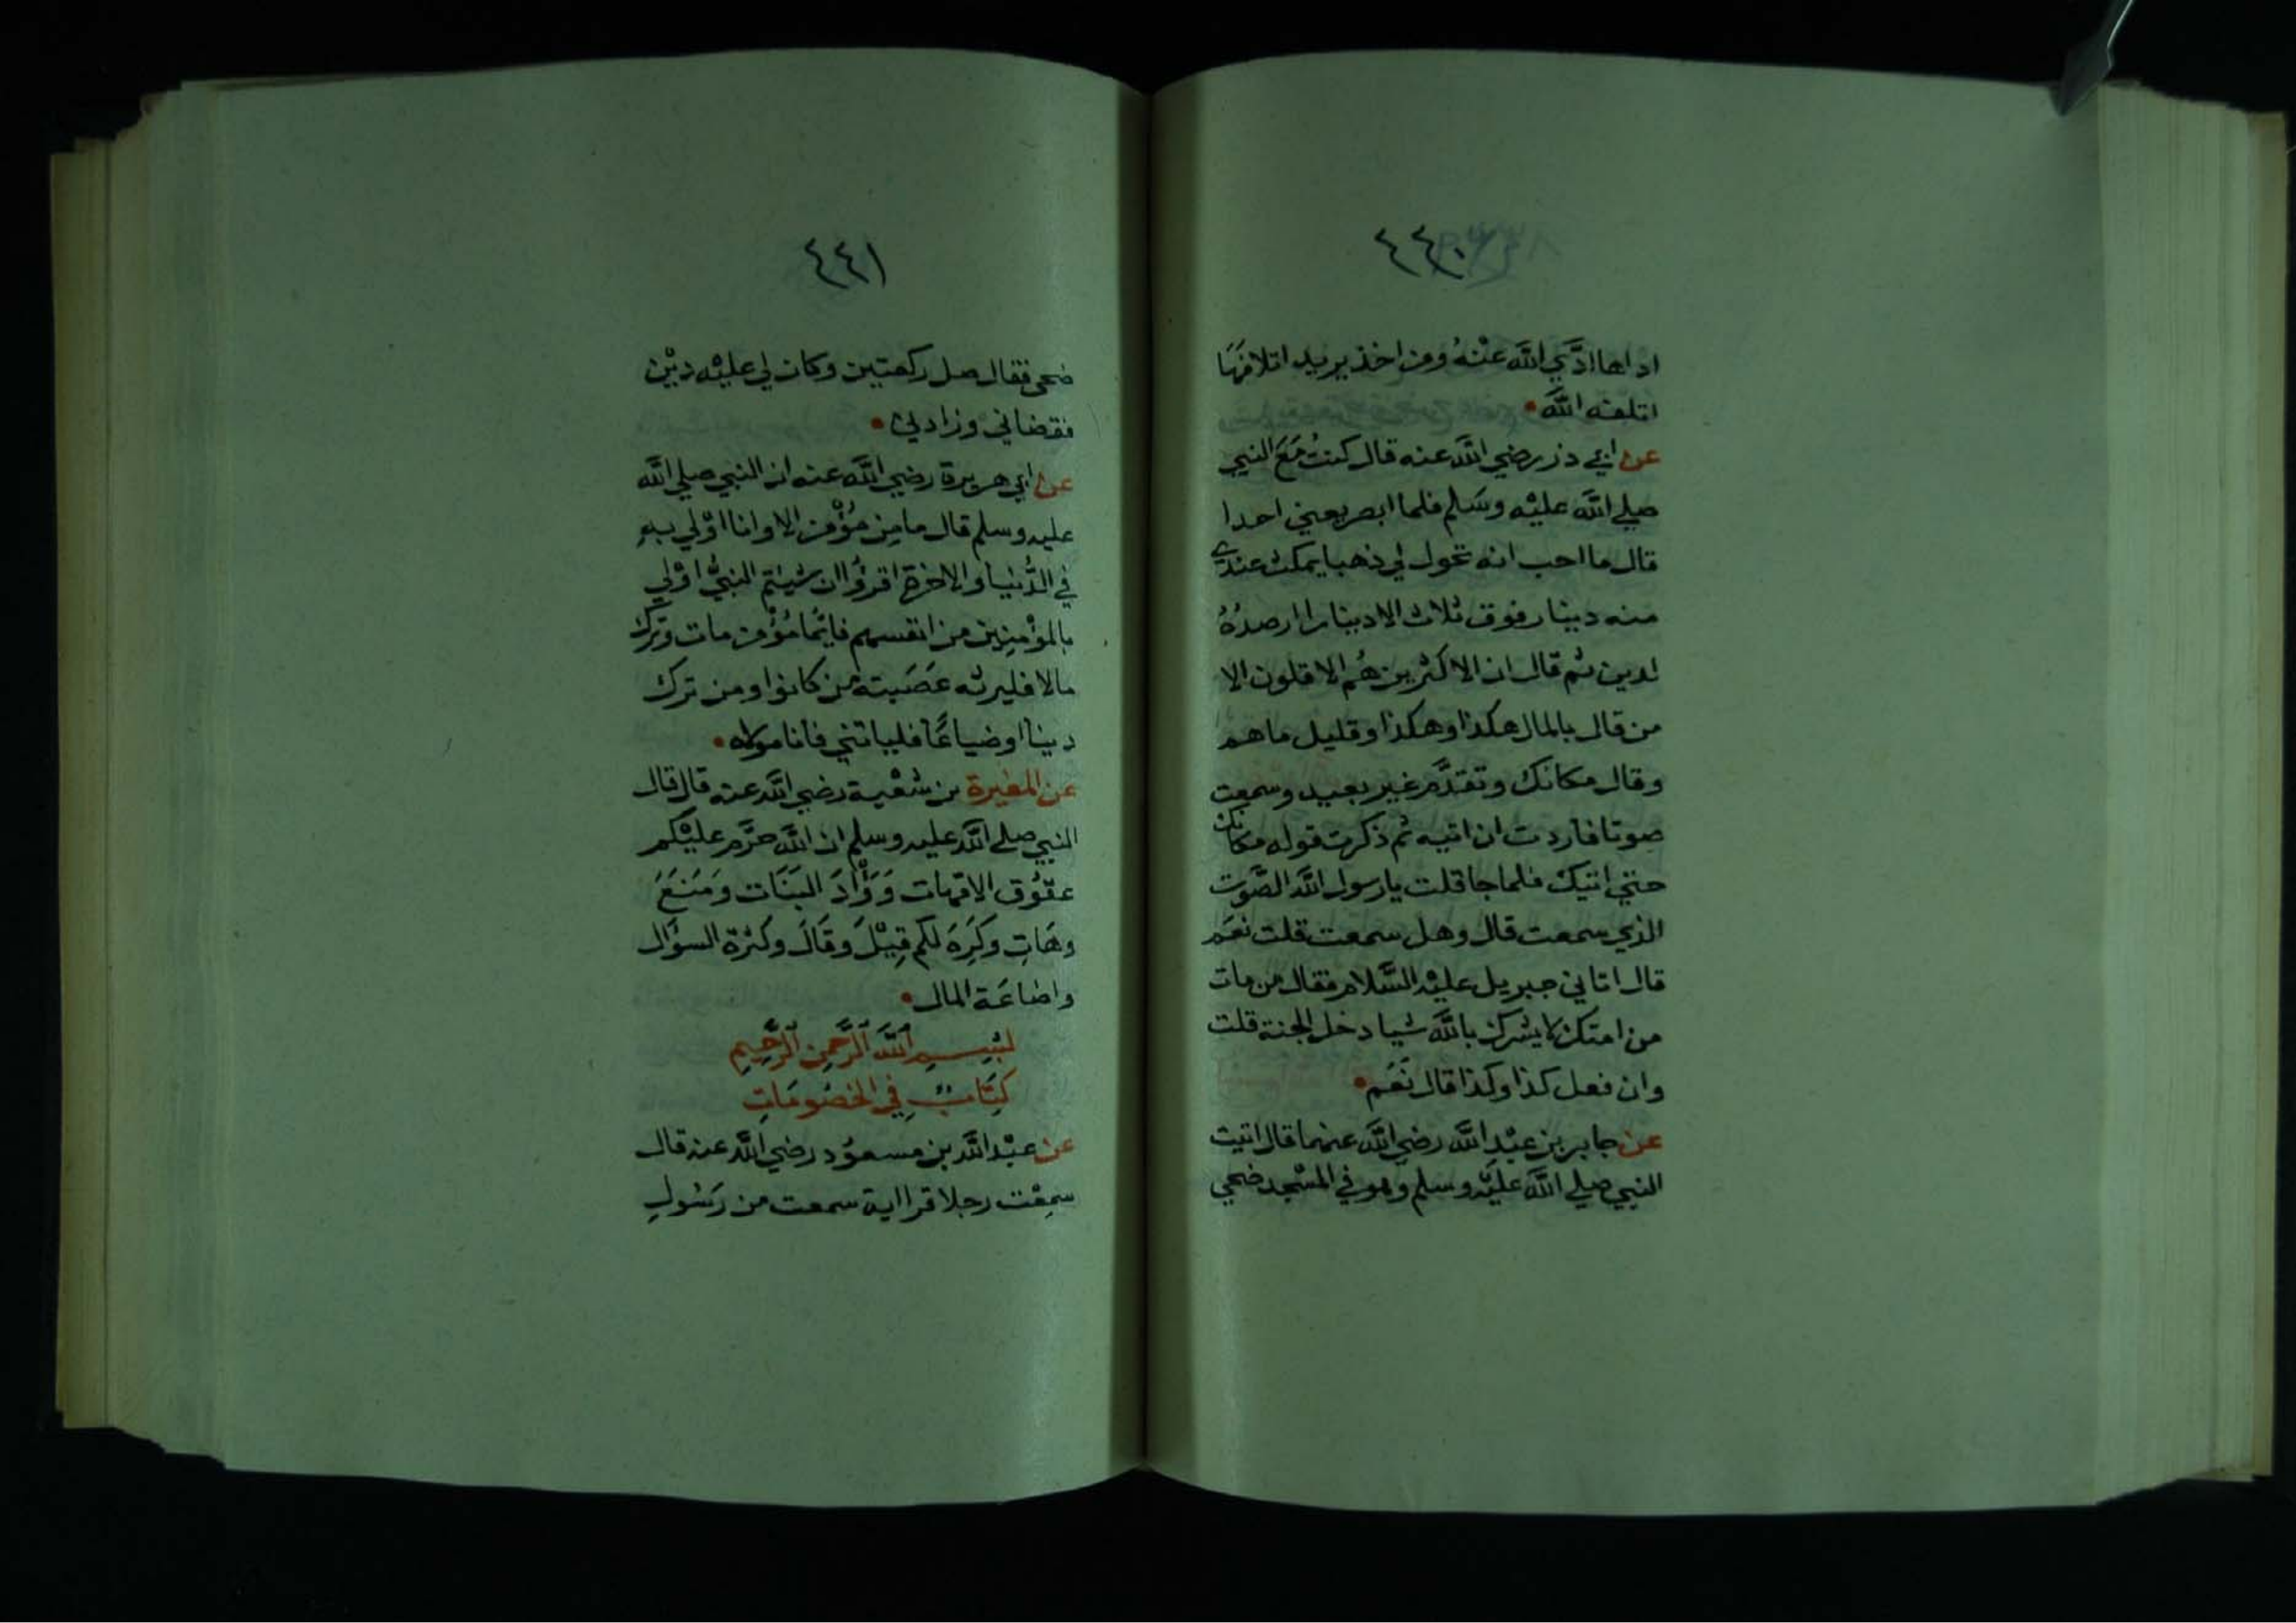 ٤٤٠
اداها ادَّي اللَّه عنْهُ ومن اخذ يريد اتلافهَا
اتلفه اللَّه
عن ابي ذر رضي اللَّه عنه قال كنتُ مَعَ النبي
صلي اللَّه عليْه وسَلم فلما ابصر يعني احدا
قال ما احب انه تحول لي ذهبا يمكث عندي
منه دينار فوق ثلاث الا دينارا ارصدُهُ
لدين ثم قال ان الاكثرين هُم الاقلون الا
من قال بالمال هكذا وهكذا وقليل ما هم
وقال مكانك وتقدَّم غير بعيد وسمعت
صوتا فاردت ان اتيه ثم ذكرت قوله مكانك
حتي اتيك فلما جا قلت يارسول اللَّه الصَّوت
الذي سمعت قال وهل سمعت قلت نعَم
قال اتاني جبريل عليْه السَّلام فقال من مات
من امتك لا يشرك باللَّه شيا دخل الجنة قلت
وان فعل كذا وكذا قال نَعَم
عن جابر بن عبْدِ اللَّه رضي اللَّه عنهما قال اتيت
النبي صلي اللَّه عليْه وسلم وهو في المسْجد ضحي
٤٤١
ضحى فقال صل ركعتين وكان لي عليْه ديْن
فقضاني وزادني
عن ابي هريرة رضي اللَّه عنه ان النبي صلي اللَّه
عليه وسلم قال ما مِن مُؤْمن الا وانا اوْلي بهِ
في الدُّنيا والاخرة اقرؤُا ان شيتم النبيُّ اوْلي
بالمؤْمنِين من انفسهم فايُّما مُؤْمن مات وترك
مالا فليرثه عَصَبته من كانوا ومن ترك
دينا اوضياعًا فلياتني فانا مولاه
عن المغيرة بن شعْبة رضي اللَّه عنه قال قال
النبي صلي اللَّه عليه وسلم ان اللَّه حرَّم عليْكم
عقوُق الامّهات وَوَأْدَ البَنَات ومَنعَ
وهَاتِ وكَرِهَ لكم قِيْلَ وقَالَ وكثرة السؤَال
واضاعَة المال
بسم اللَّه الرَّحمن الرَّحيم
كِتَابٌ في الخصُومَاتِ
عن عبْد اللَّه بن مسعوُد رضي اللَّه عنه قال
سمِعْت رجلا قرا اية سمعت من رَسُولِ